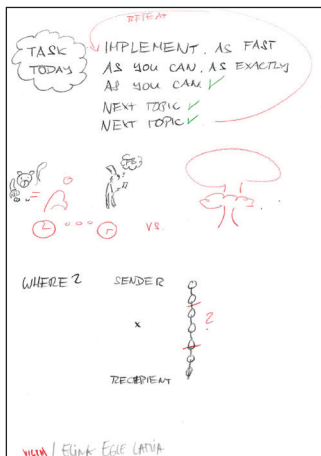 REPEAT
TASK
TODAY
IMPLEMENT, AS FAST
AS YOU CAN, AS EXACTLY
AS YOU CAN
NEXT TOPIC
NEXT TOPIC
VS.
WHERE?
SENDER
X
?
RECIPIENT
ELINA EGLE LATVIA